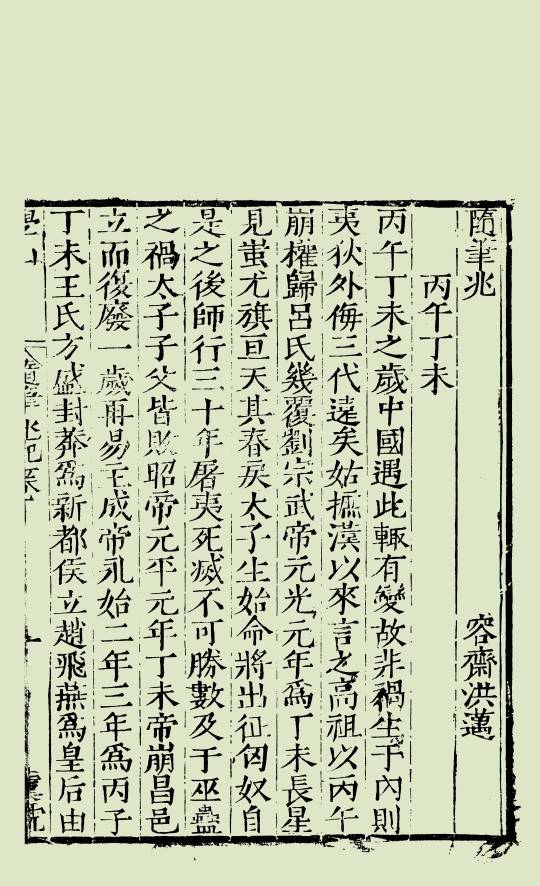 隨筆兆
容齋洪邁
丙午丁未
丙午丁未之歲中國遇此輒有變故非禍生于內則
夷狄外侮三代遠矣姑摭漢以來言之高祖以丙午
崩權歸呂氏幾覆劉宗武帝元光元年爲丁未長星
見蚩尤旗亘天其春戾太子生始命將出征匈奴自
是之後師行三十年屠夷死滅不可勝數及于巫蠱
之禍太子子父皆敗昭帝元平元年丁未帝崩昌邑
立而復廢一歲再易主成帝永始二年三年爲丙子
丁未王氏方盛封莽爲新都侯立趙飛燕爲皇后由